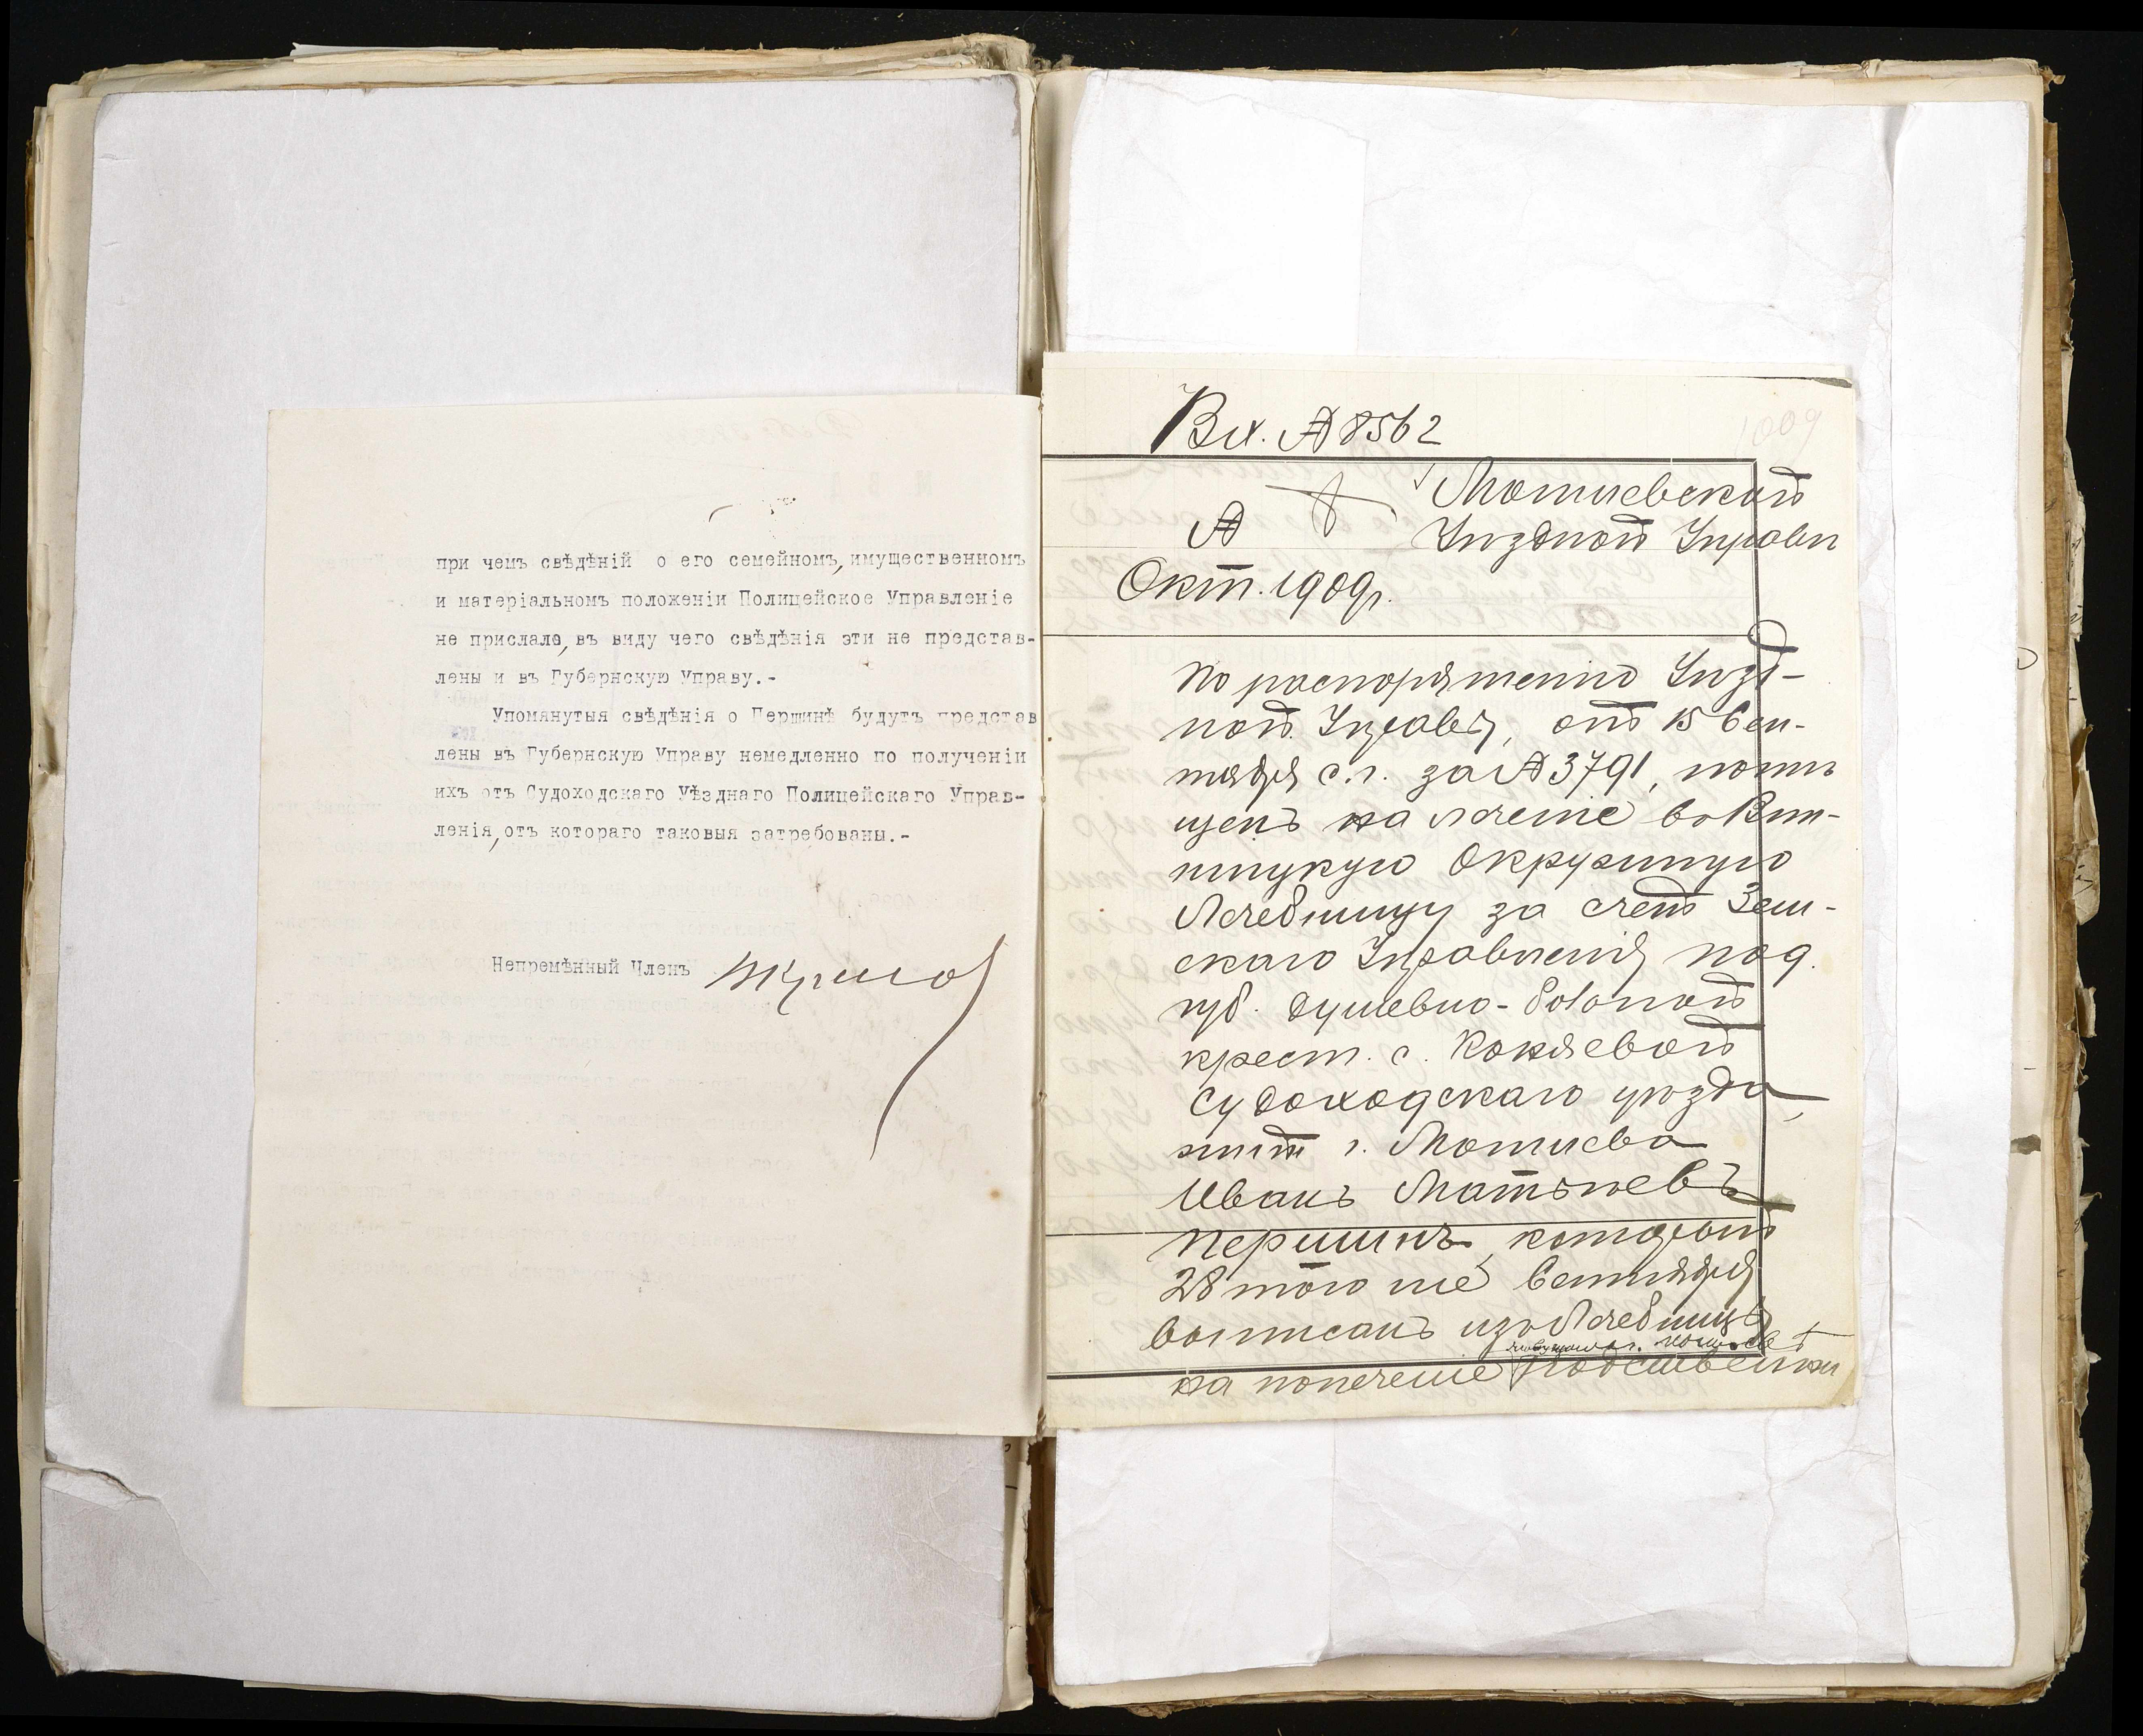 при чемъ свѣдѣній о его семейномъ, имущественномъ
и матеріальномъ положеніи Полицейское Управленіе
не прислало, въ виду чего свѣдѣнія эти не представ-
лены и въ Губернскую Управу.-
Упомянутыя свѣдѣнія о Першинѣ будутъ представ
лены въ Губернскую Управу немедленно по полученіи
ихъ отъ Судоходскаго Уѣзднаго Полицейскаго Управ-
ленія, отъ котораго таковыя затребованы.-
Непремѣнный Членъ
1009
Вх. № 8562
Могилевской
№ Уѣздной Управѣ
Окт. 1909 г.
По распоряженію Уѣзд-
ной Управы, отъ 15 Сен-
тября с.г. за № 3791, помѣ
щенъ на леченіе въ Вин-
ницкую Окружную
Лечебницу за счетъ Зем-
скаго Управленія под.
губ. душевно-больной
крест. с.
Судоходскаго уѣзда,
жит. г. Могилева
Иванъ Матвѣевъ
Першинъ, который
28 того же Сентября
выписанъ изъ Лечебницы
на попеченіе родственни